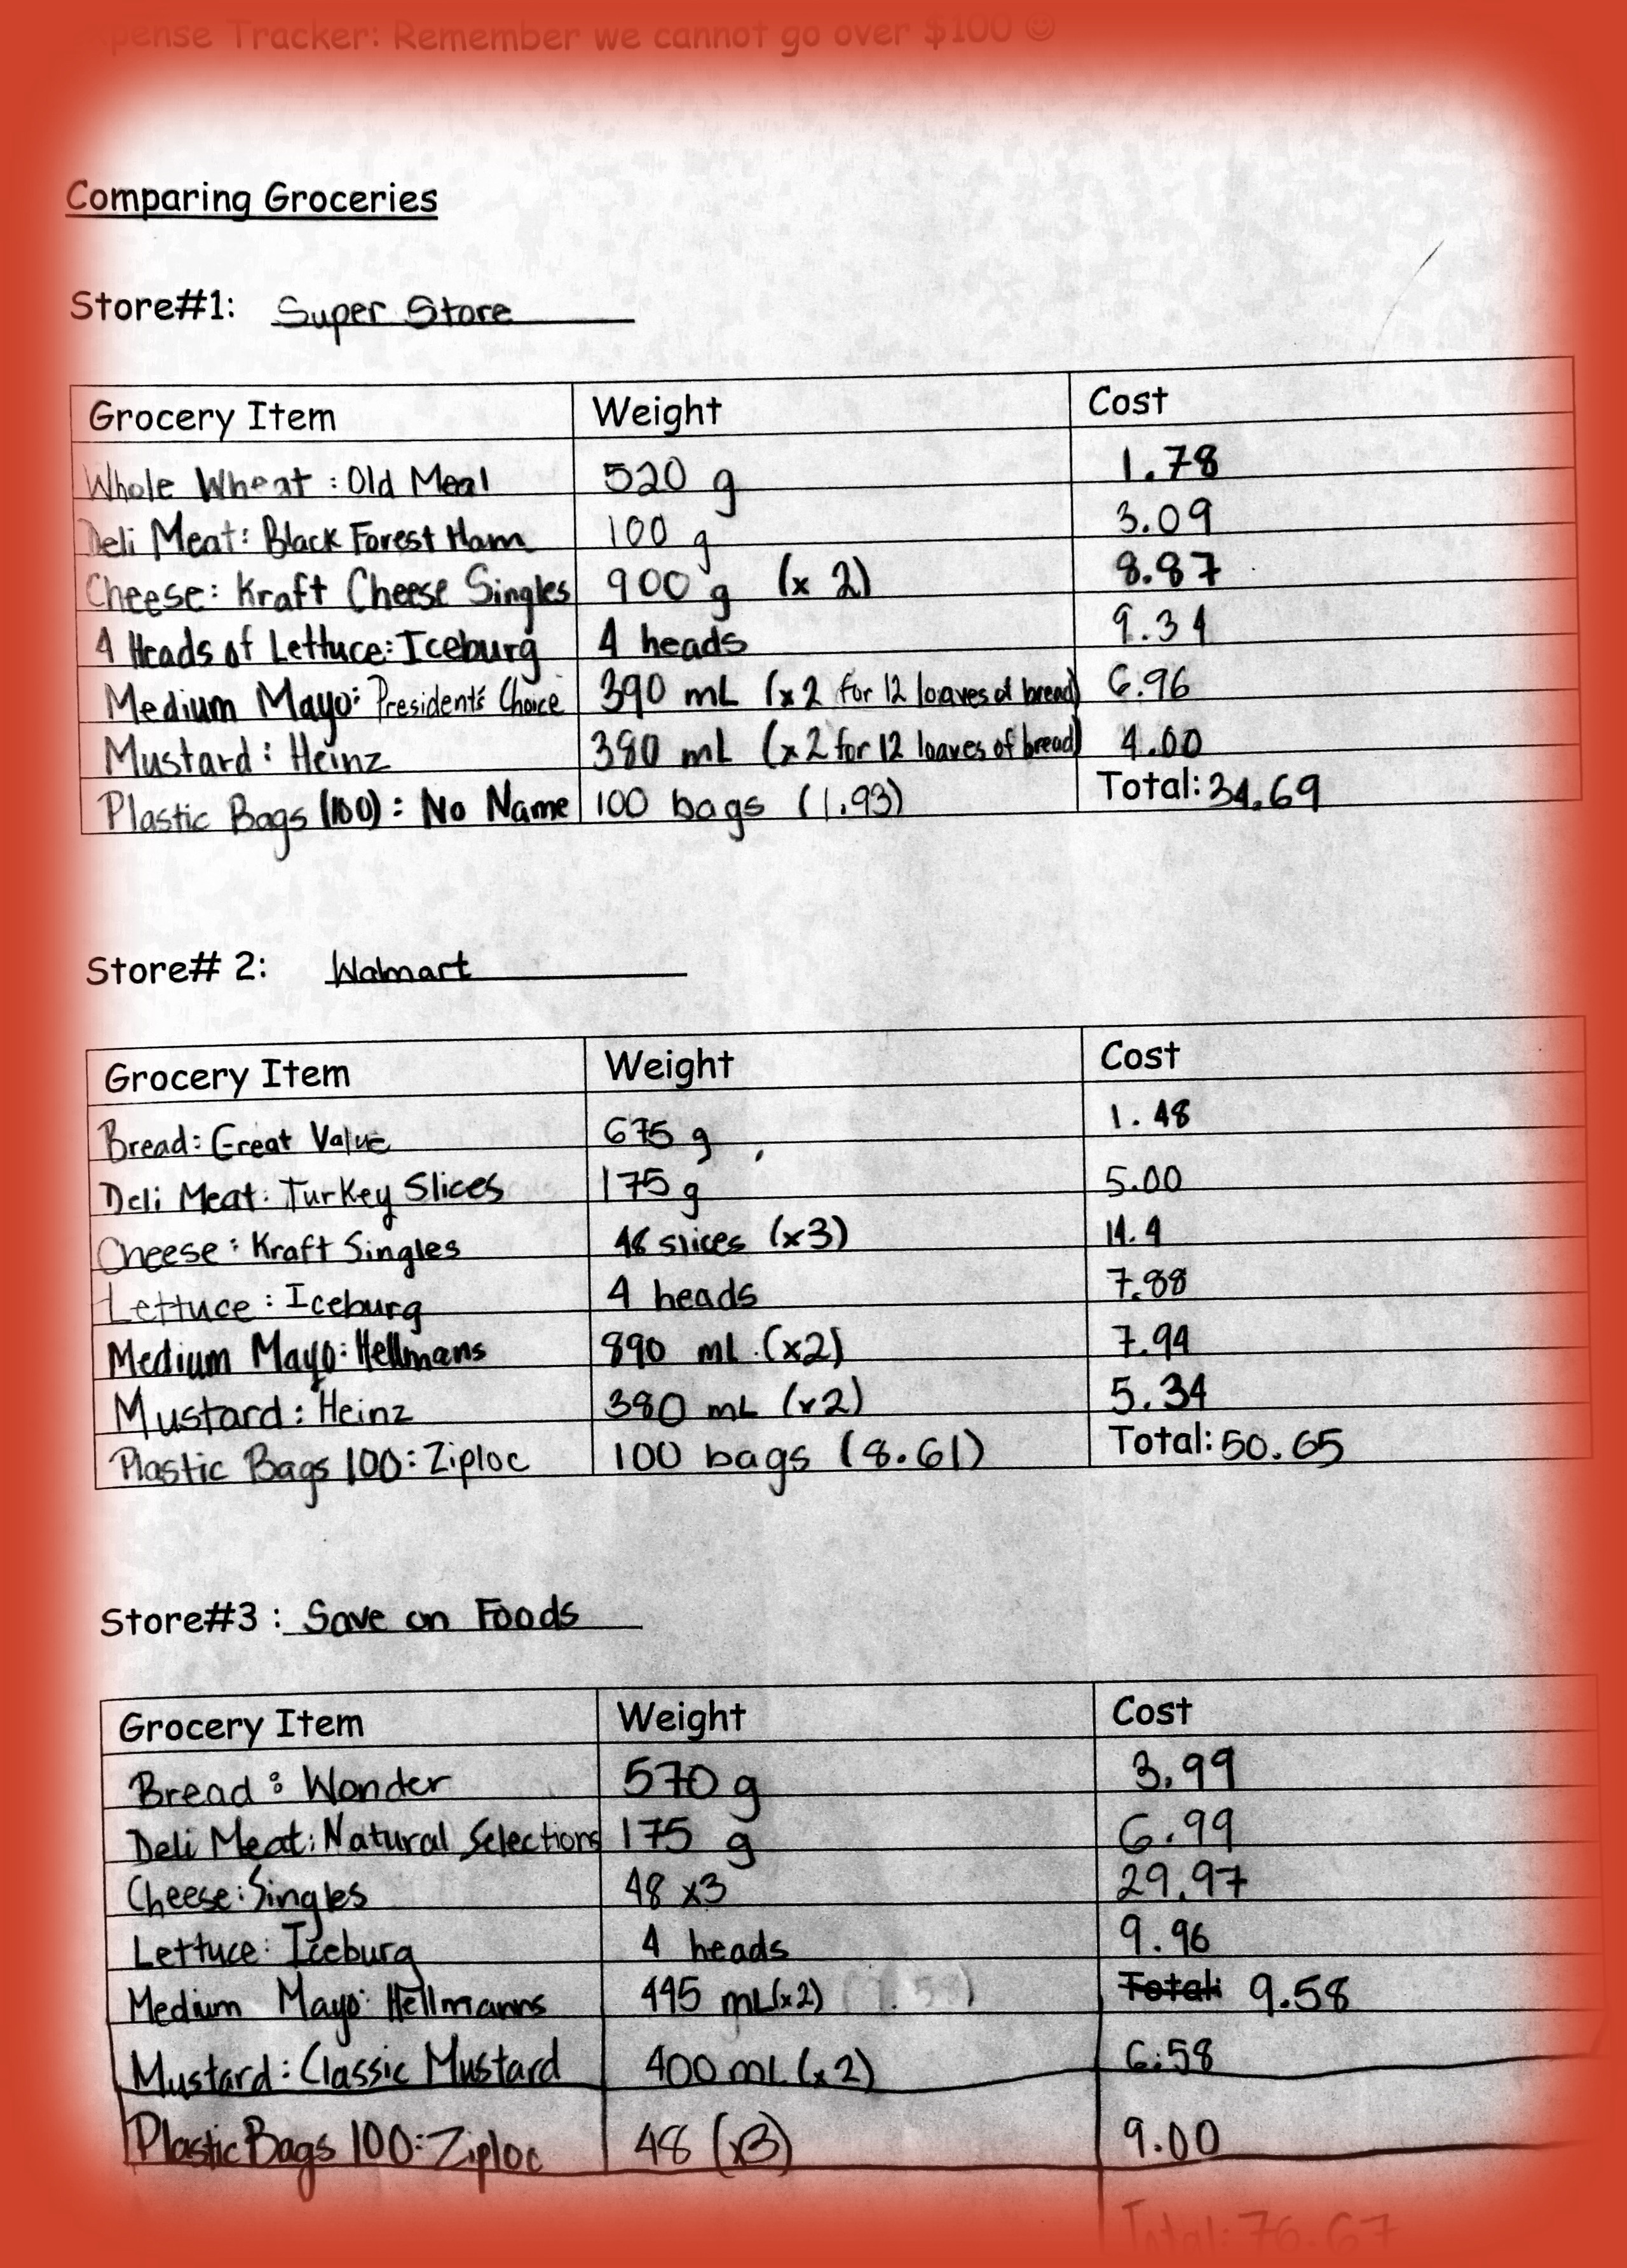 pense Tracker: Remember we cannot go over $100 ☺
Comparing Groceries
Store#1: Super Store
Grocery Item Weight Cost
Whole Wheat : Old Meal 520 g 1.78
Deli Meat: Black Forest Ham 100 g 3.09
Cheese: Kraft Cheese Singles 900 g (x 2) 8.87
4 Heads of Lettuce: Iceburg 4 heads 9.34
Medium Mayo: President's Choice 390 mL (x2 for 12 loaves of bread) 6.96
Mustard : Heinz 380 mL (x2 for 12 loaves of bread) 4.00
Plastic Bags (100) : No Name 100 bags (1.93) Total: 34.69
Store# 2: Walmart
Grocery Item Weight Cost
Bread: Great Value 675 g 1.48
Deli Meat: Turkey Slices 175 g 5.00
Cheese : Kraft Singles 48 slices (x3) 14.4
Lettuce : Iceburg 4 heads 7.88
Medium Mayo: Hellmans 890 mL (x2) 7.94
Mustard : Heinz 380 mL (x2) 5.34
Plastic Bags 100: Ziploc 100 bags (8.61) Total: 50.65
Store#3 : Save on Foods
Grocery Item Weight Cost
Bread : Wonder 570 g 3.99
Deli Meat: Natural Selections 175 g 6.99
Cheese: Singles 48 x3 29.97
Lettuce: Iceburg 4 heads 9.96
Medium Mayo: Hellmanns 445 mL(x2) Total: 9.58
Mustard : Classic Mustard 400 mL (x2) 6.58
Plastic Bags 100: Ziploc 48 (x3) 9.00
Total: 76.67